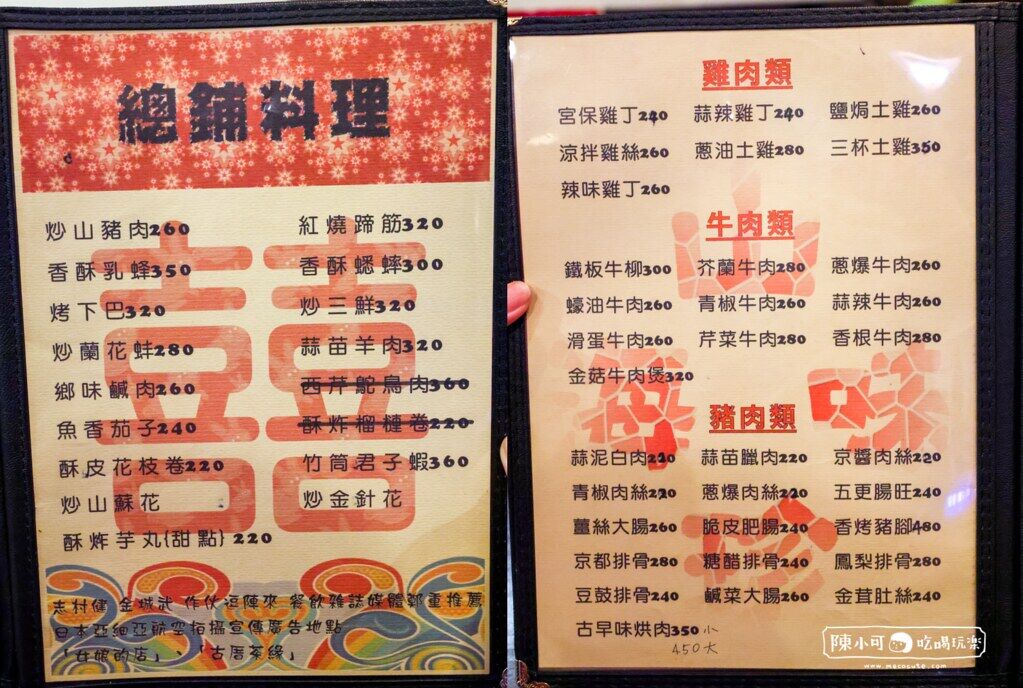 總鋪料理
炒山豬肉260
香酥乳蜂350
烤下巴320
炒蘭花蚌280
鄉味鹹肉260
魚香茄子240
酥皮花枝卷220
炒山蘇花
酥炸芋丸{甜點} 220
紅燒蹄筋320
香酥蟋蟀300
炒三鮮320
蒜苗羊肉320
西芹鴕鳥肉360
酥炸榴槤卷220
竹筒君子蝦360
炒金針花
志村健 金城武 作伙逗陣來 餐飲雜誌媒體鄭重推薦
日本亞細亞航空拍攝宣傳廣告地點
「女娘的店」、「古厝茶緣」
雞肉類
宮保雞丁240 蒜辣雞丁240 鹽焗土雞260
涼拌雞絲260 蔥油土雞280 三杯土雞350
辣味雞丁260
牛肉類
鐵板牛柳300 芥蘭牛肉280 蔥爆牛肉260
蠔油牛肉260 青椒牛肉260 蒜辣牛肉260
滑蛋牛肉260 芹菜牛肉280 香根牛肉280
金菇牛肉煲320
豬肉類
蒜泥白肉220 蒜苗臘肉220 京醬肉絲220
青椒肉絲220 蔥爆肉絲220 五更腸旺240
薑絲大腸260 脆皮肥腸240 香烤豬腳480
京都排骨280 糖醋排骨240 鳳梨排骨280
豆鼓排骨240 鹹菜大腸260 金茸肚絲240
古早味烘肉350小
450大
陳小可 吃喝玩樂
www.mecocute.com